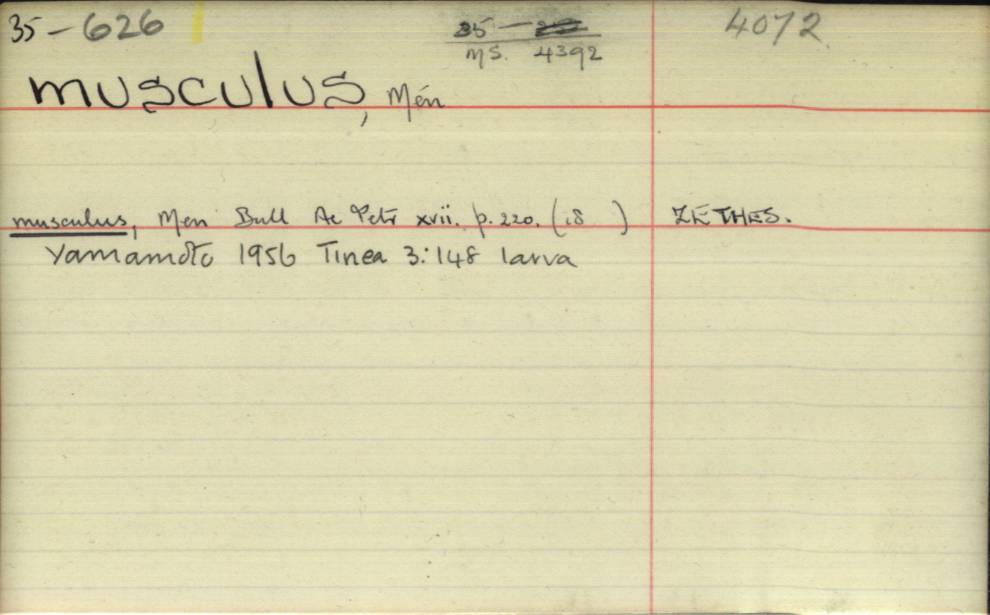 35-626 35- 4072
MS. 4392
musculus, Mén
musculus, Men Bull Ac Petr xvii. p. 220. (18 ) ZETHES.
Yamamoto 1956 Tinea 3:148 larva